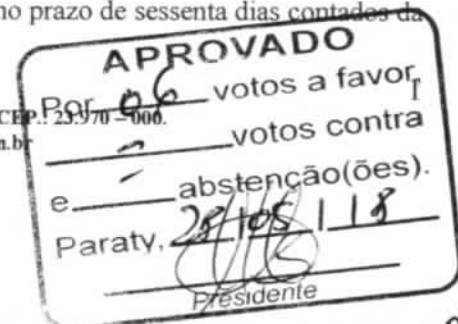 no prazo de sessenta dias contados da
APROVADO
Por 06 votos a favor,
CEP.: 23.970 – 000.
votos contra
e abstenção(ões).
Paraty, 28/05/18
Presidente